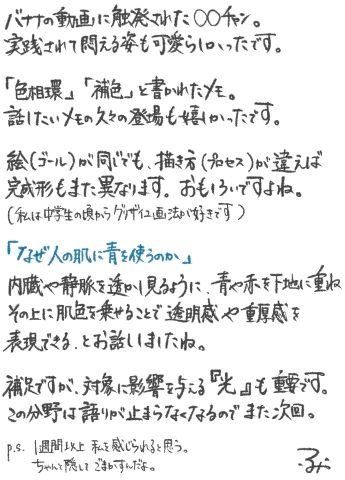 バナナの動画に触発された〇〇チャン。
実践されて悶える姿も可愛らしかったです。
「色相環」「補色」と書かれたメモ。
話したいメモの久々の登場も嬉しかったです。
絵(ゴール)が同じでも、描き方(プロセス)が違えば
完成形もまた異なります。おもしろいですよね。
(私は中学生の頃からグリザイユ画法が好きです)
「なぜ人の肌に青を使うのか」
内臓や静脈を透かし見るように、青や赤を下地に重ね
その上に肌色を乗せることで透明感や重厚感を
表現できる、とお話しましたね。
補足ですが、対象に影響を与える『光』も重要です。
この分野は語りが止まらなくなるのでまた次回。
p.s. 1週間以上私を感じられると思う。
ちゃんと隠してごまかすんだよ。